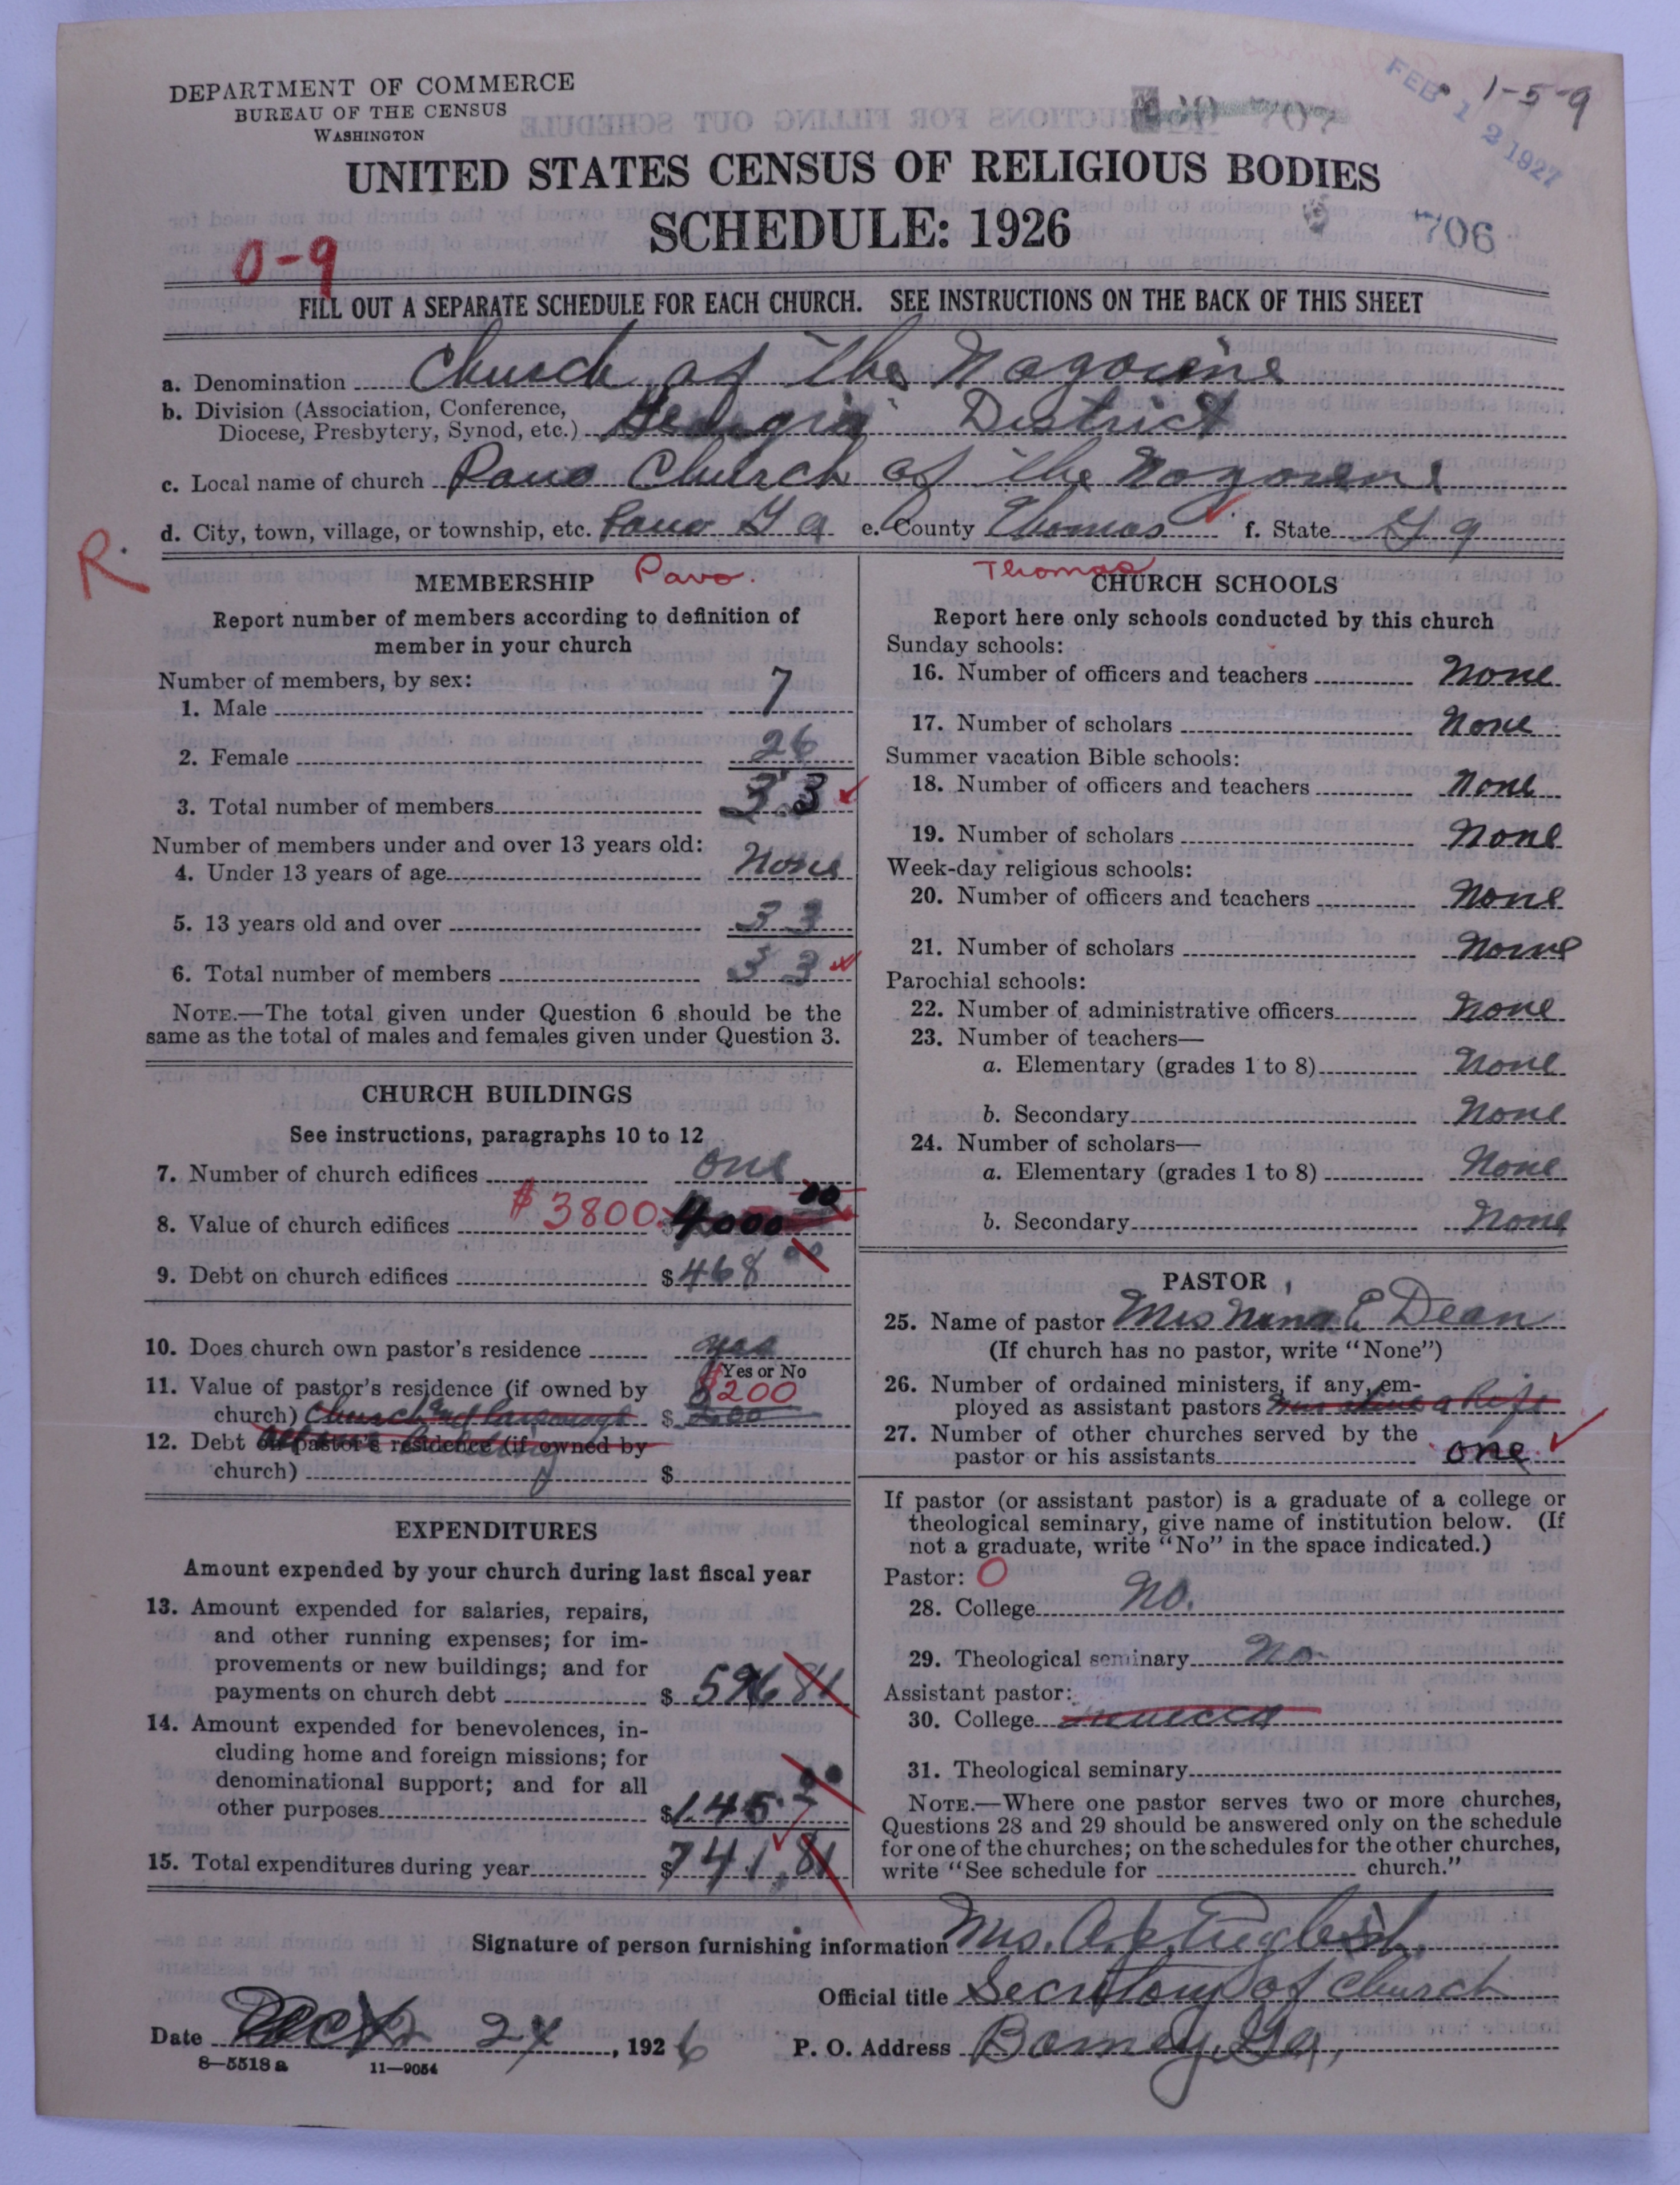 DEPARTMENT OF COMMERCE
BUREAU OF THE CENSUS
WASHINGTON
FEB 12 1927
1-5-9
707
UNITED STATES CENSUS OF RELIGIOUS BODIES
SCHEDULE: 1926
706
0-9
FILL OUT A SEPARATE SCHEDULE FOR EACH CHURCH. SEE INSTRUCTIONS ON THE BACK OF THIS SHEET
a. Denomination Church of the Nazorine
b. Division (Association, Conference,
Diocese, Presbytery, Synod, etc.) Georgia District
c. Local name of church Pavo Church of the Nazorene
d. City, town, village, or township, etc. Pavo Ga e. County Thomas f. State Ga
R.
MEMBERSHIP Pavo.
Report number of members according to definition of
member in your church
Number of members, by sex:
1. Male 7
2. Female 26
3. Total number of members 33
Number of members under and over 13 years old:
4. Under 13 years of age None
5. 13 years old and over 33
6. Total number of members 33
NOTE.—The total given under Question 6 should be the
same as the total of males and females given under Question 3.
CHURCH BUILDINGS
See instructions, paragraphs 10 to 12
7. Number of church edifices one
8. Value of church edifices $3800 $4000 00
9. Debt on church edifices $468 00
10. Does church own pastor's residence yes
Yes or No
11. Value of pastor's residence (if owned by $200
church) Church and Parsonage $
12. Debt on pastor's residence (if owned by
church) $
EXPENDITURES
Amount expended by your church during last fiscal year
13. Amount expended for salaries, repairs,
and other running expenses; for im-
provements or new buildings; and for
payments on church debt $596 81
14. Amount expended for benevolences, in-
cluding home and foreign missions; for
denominational support; and for all
other purposes $145 00
15. Total expenditures during year $741,81
Thomas
CHURCH SCHOOLS
Report here only schools conducted by this church
Sunday schools:
16. Number of officers and teachers None
17. Number of scholars None
Summer vacation Bible schools:
18. Number of officers and teachers None
19. Number of scholars None
Week-day religious schools:
20. Number of officers and teachers None
21. Number of scholars None
Parochial schools:
22. Number of administrative officers None
23. Number of teachers—
a. Elementary (grades 1 to 8) None
b. Secondary None
24. Number of scholars—
a. Elementary (grades 1 to 8) None
b. Secondary None
PASTOR
25. Name of pastor Mrs Nana E Dean
(If church has no pastor, write "None")
26. Number of ordained ministers, if any, em-
ployed as assistant pastors
27. Number of other churches served by the
pastor or his assistants one
If pastor (or assistant pastor) is a graduate of a college or
theological seminary, give name of institution below. (If
not a graduate, write "No" in the space indicated.)
Pastor: O
28. College No.
29. Theological seminary No
Assistant pastor:
30. College
31. Theological seminary
NOTE.—Where one pastor serves two or more churches,
Questions 28 and 29 should be answered only on the schedule
for one of the churches; on the schedules for the other churches,
write "See schedule for church."
Signature of person furnishing information Mrs. English.
Official title Secretary of Church
Date Dec 24, 1926 P. O. Address Barney, Ga,
8-5518 a 11-9054